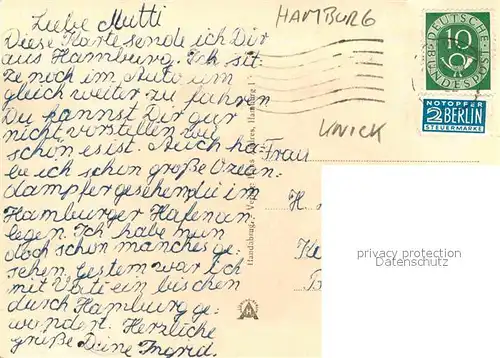 Liebe Mutti
Diese Karte sende ich Dir
aus Hamburg. Ich sit-
ze noch im Auto um
gleich weiter zu fahren
Du kannst Dir gar
nicht vorstellen wie
schön es ist. Auch ha-
be ich schon große Ozean-
dampfer gesehen die im
Hamburger Hafen an
legen. Ich habe nun
doch schon manches ge-
sehen. Gestern war ich
mit Vati ein bischen
durch Hamburg ge-
wandert. Herzliche
grüße Deine Ingrid.
HAMBURG
KNICK
Frau
H
DEUTSCHE
BUNDESPOST
10
NOTOPFER
2 BERLIN
STEUERMARKE
Handabzug
Hamburg 1
privacy protection
Datenschutz